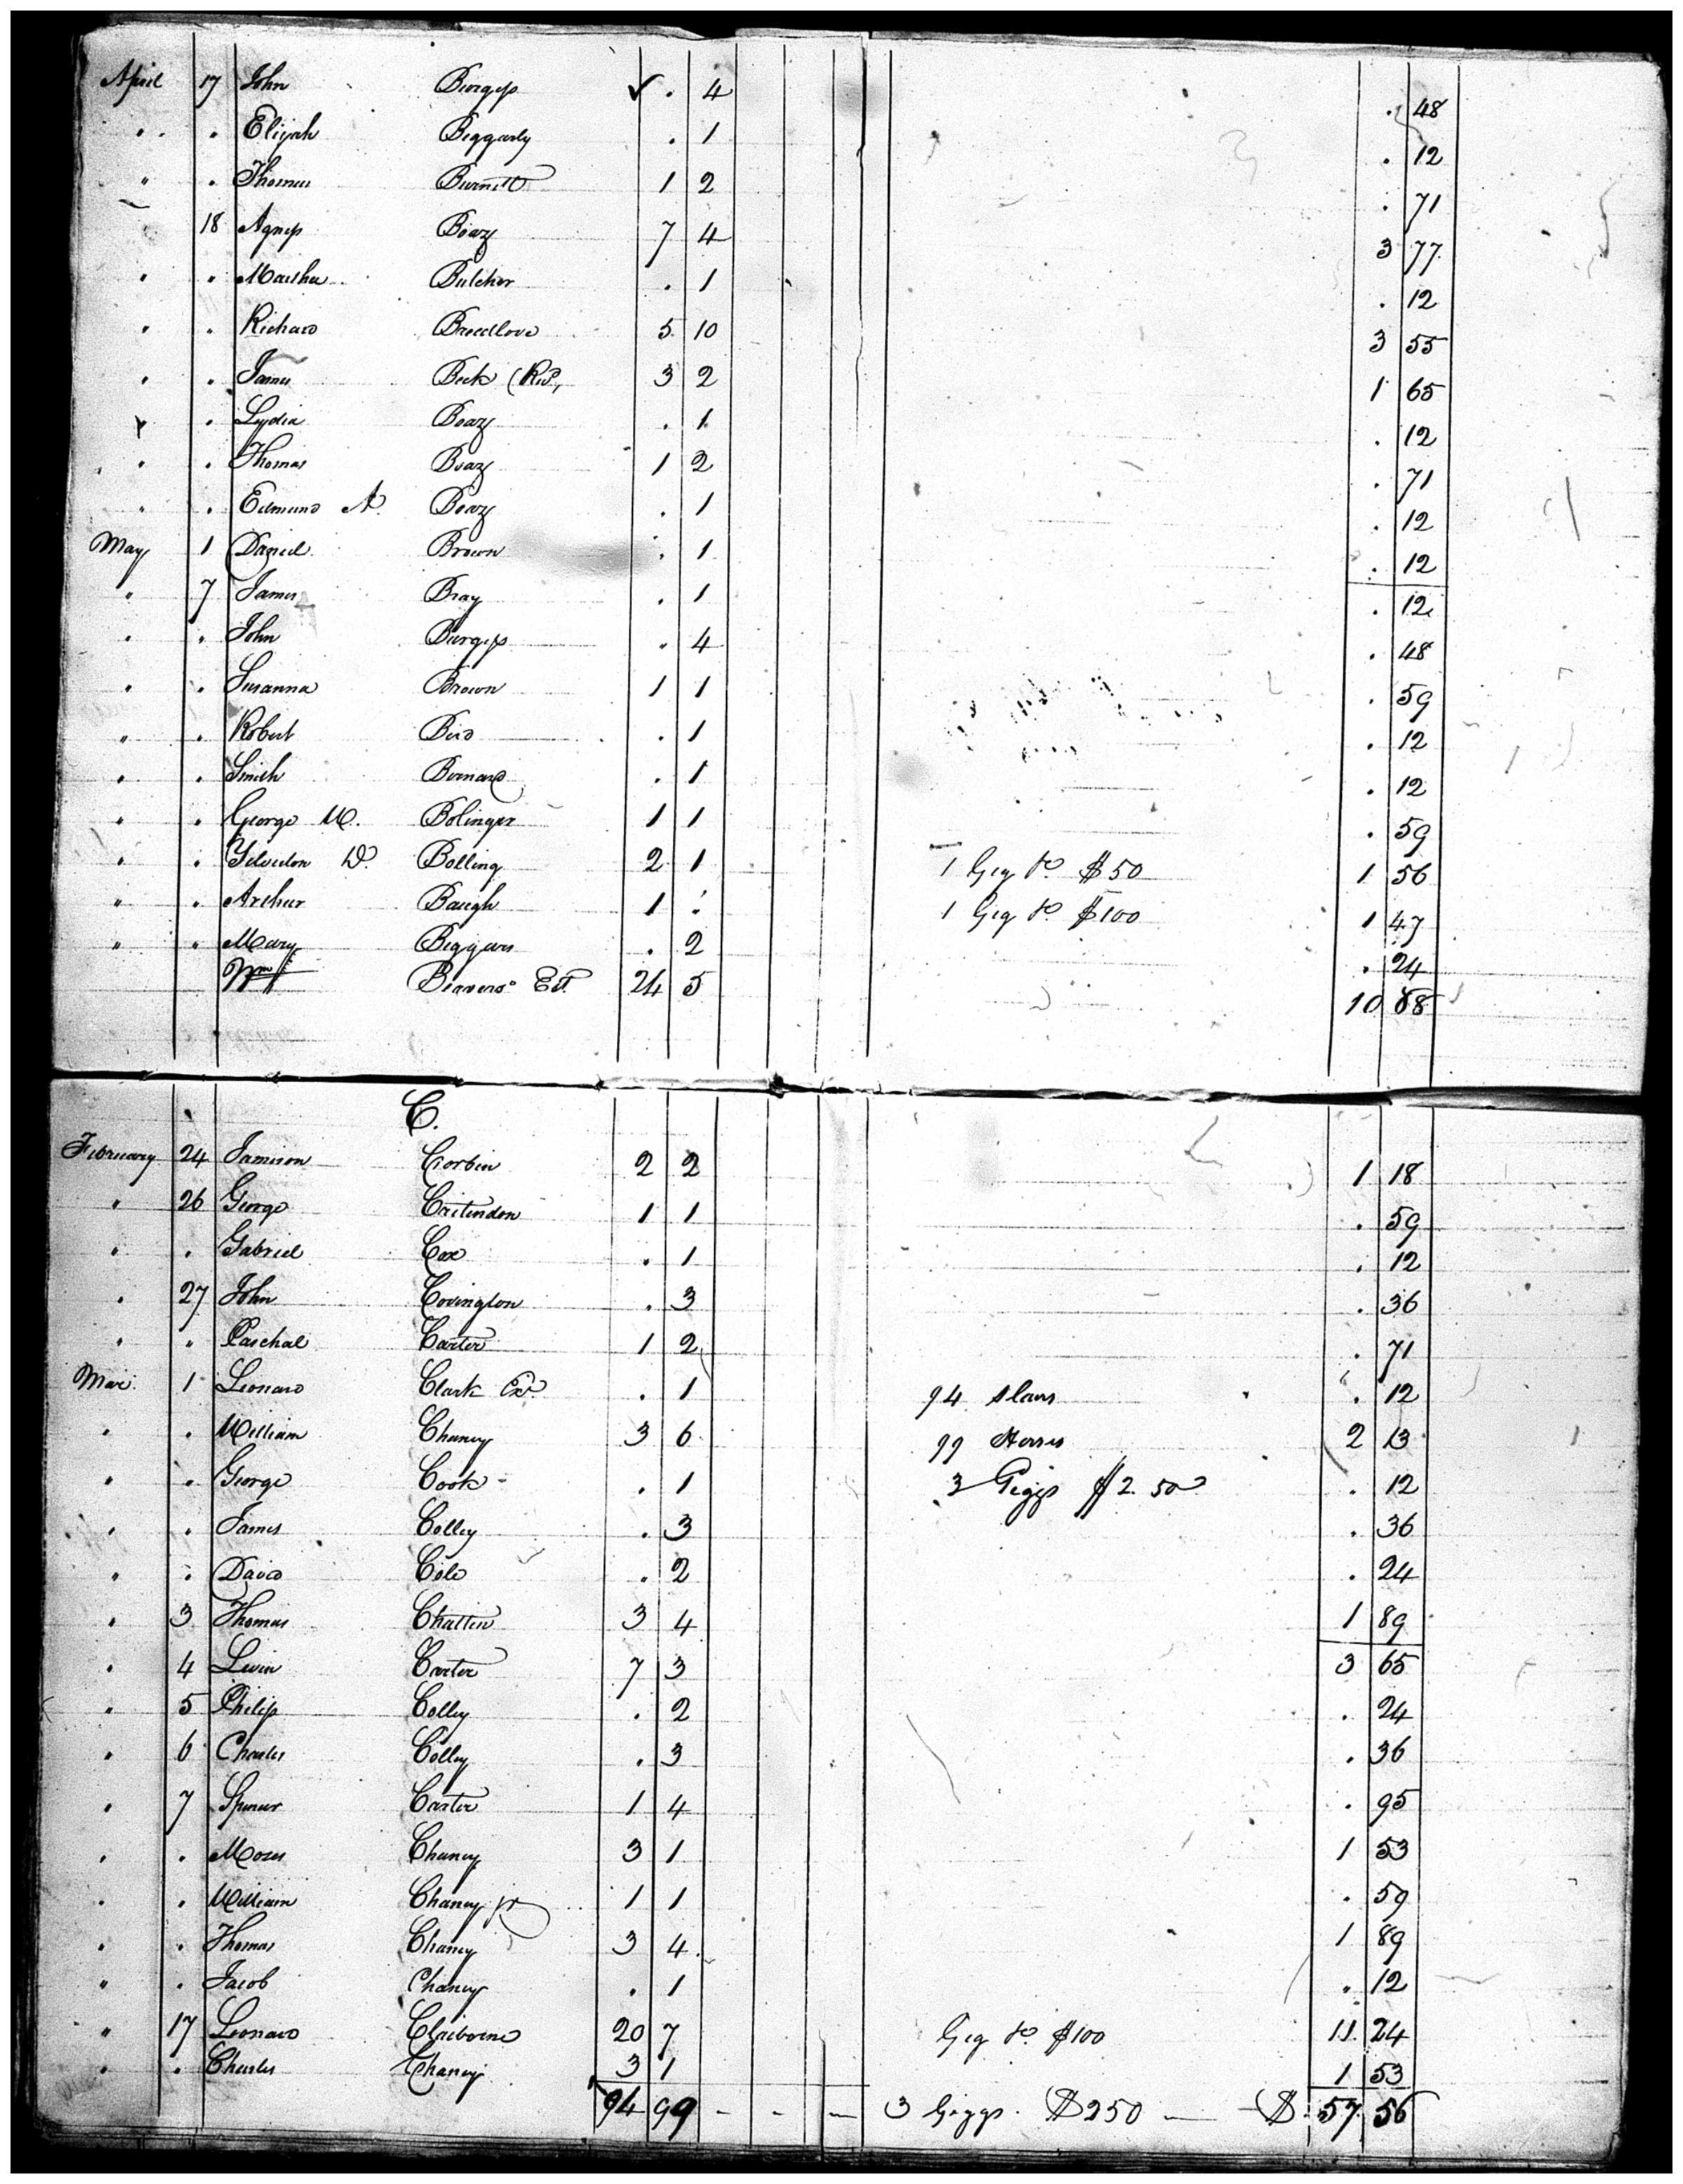 April 17 John Burgess ✓ . 4 . 48
" . Elijah Beggarly . 1 . 12
" . Thomas Burnett 1 2 . 71
18 Agness Boaz 7 4 3 77
" " Martha Butcher . 1 . 12
" " Richard Breedlove 5 10 3 55
" " James Beck (Rivr, 3 2 1 65
" . Lydia Boaz . 1 . 12
" . Thomas Boaz 1 2 . 71
" . Edmund A. Boaz . 1 . 12
May 1 Daniel Brown . 1 . 12
" 7 James Bray . 1 . 12
" " John Burgess . 4 . 48
" . Susanna Brown 1 1 . 59
" . Robert Bird . 1 . 12
" . Smith Bernard . 1 . 12
" . George W. Bolinger 1 1 . 59
" . D. Bolling 2 1 1 Gig do. $50 1 56
" " Archer Baugh 1 . 1 Gig do. $100 1 47
" " Mary Beggars . 2 . 24
Wm Beavers Est. 24 5 10 88
C.
February 24 Jamison Corbin 2 2 1 18
" 26 George Critendon 1 1 . 59
" . Gabriel Cox . 1 . 12
" 27 John Covington . 3 . 36
" " Paschal Carter 1 2 . 71
Mar. 1 Leonard Clark Exr. . 1 94 slaves . 12
" . William Chaney 3 6 99 Horses 2 13
" . George Cook . 1 3 Giggs $2.50 . 12
" . James Colley . 3 . 36
" . David Cole . 2 . 24
" 3 Thomas Chattin 3 4 1 89
" 4 Levin Carter 7 3 3 65
" 5 Philip Colley . 2 . 24
" 6 Charles Colley . 3 . 36
" 7 Spencer Carter 1 4 . 95
" . Moses Chaney 3 1 1 53
" . William Chaney jr 1 1 . 59
" . Thomas Chaney 3 4 1 89
" . Jacob Chaney . 1 . 12
" 17 Leonard Claiborne 20 7 Gig do. $100 11 24
" . Charles Chaney 3 1 1 53
94 99 - - — 3 Giggs. $250 — $ 57 56